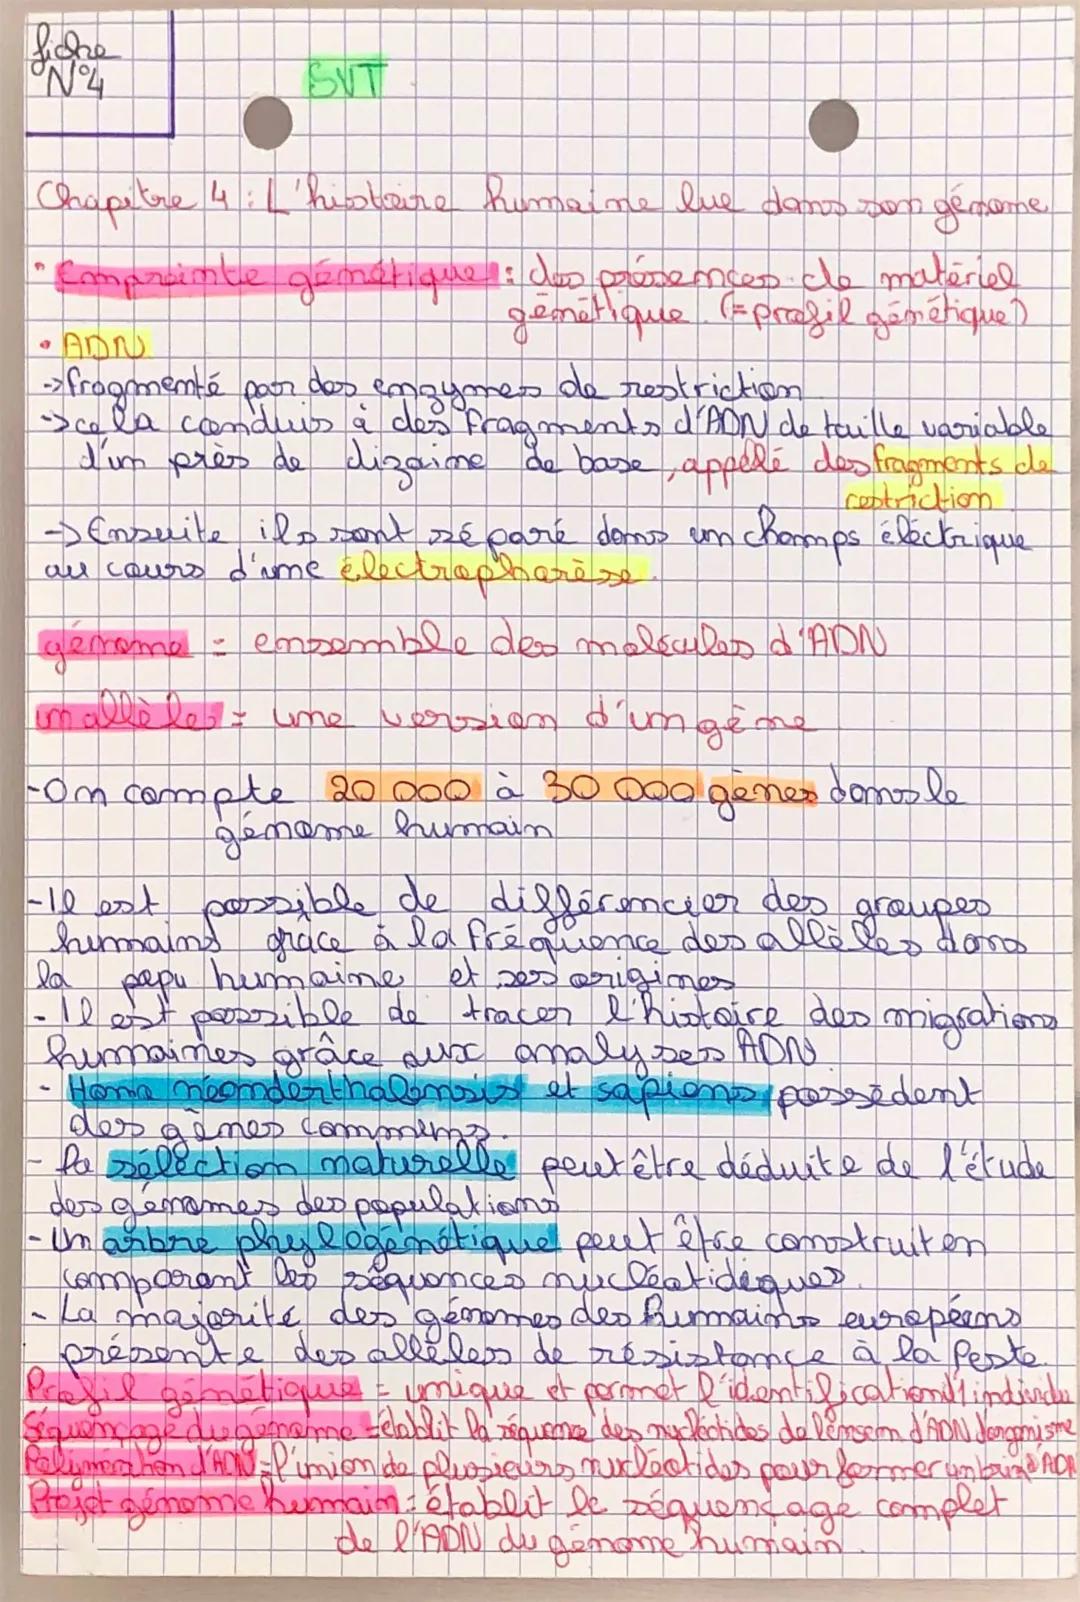 fiche
N°4
SVT
Chapitre 4 : L'histoire humaine lue dans son génome
• Empreinte génétique : des présences de matériel
génétique. (= profil génétique)
• ADN
-> fragmenté par des enzymes de restriction
-> cela conduis à des fragments d'ADN de taille variable
d'un près de dizaine de base, appellé des fragments de
restriction
-> Ensuite ils sont séparé dans un champs éléctrique
au cours d'une électrophorèse.
génome = ensemble des molécules d'ADN
un allèles = une version d'un gène
- On compte 20 000 à 30 000 gènes dans le
génome humain
- Il est possible de différencier des groupes
humains grâce à la fréquence des allèles dans
la popu humaine et ses origines
- Il est possible de tracer l'histoire des migrations
humaines grâce aux analyses ADN
- Homo néanderthalensis et sapiens possèdent
des gènes communs.
- La sélection naturelle peut être déduite de l'étude
des génomes des populations
- Un arbre phylogénétique peut être construit en
comparant les séquences nucléotidiques.
- La majorité des génomes des humains européens
présente des allèles de résistance à la Peste.
Profil génétique = unique et permet l'identification d'1 individu
Séquençage du génome = établit la séquence des nucléotides de l'ensem d'ADN d'organisme
Polymérisation d'ADN = l'union de plusieurs nucléotides pour former un brin d'ADN
Projet génome humain = établit le séquençage complet
de l'ADN du génome humain.